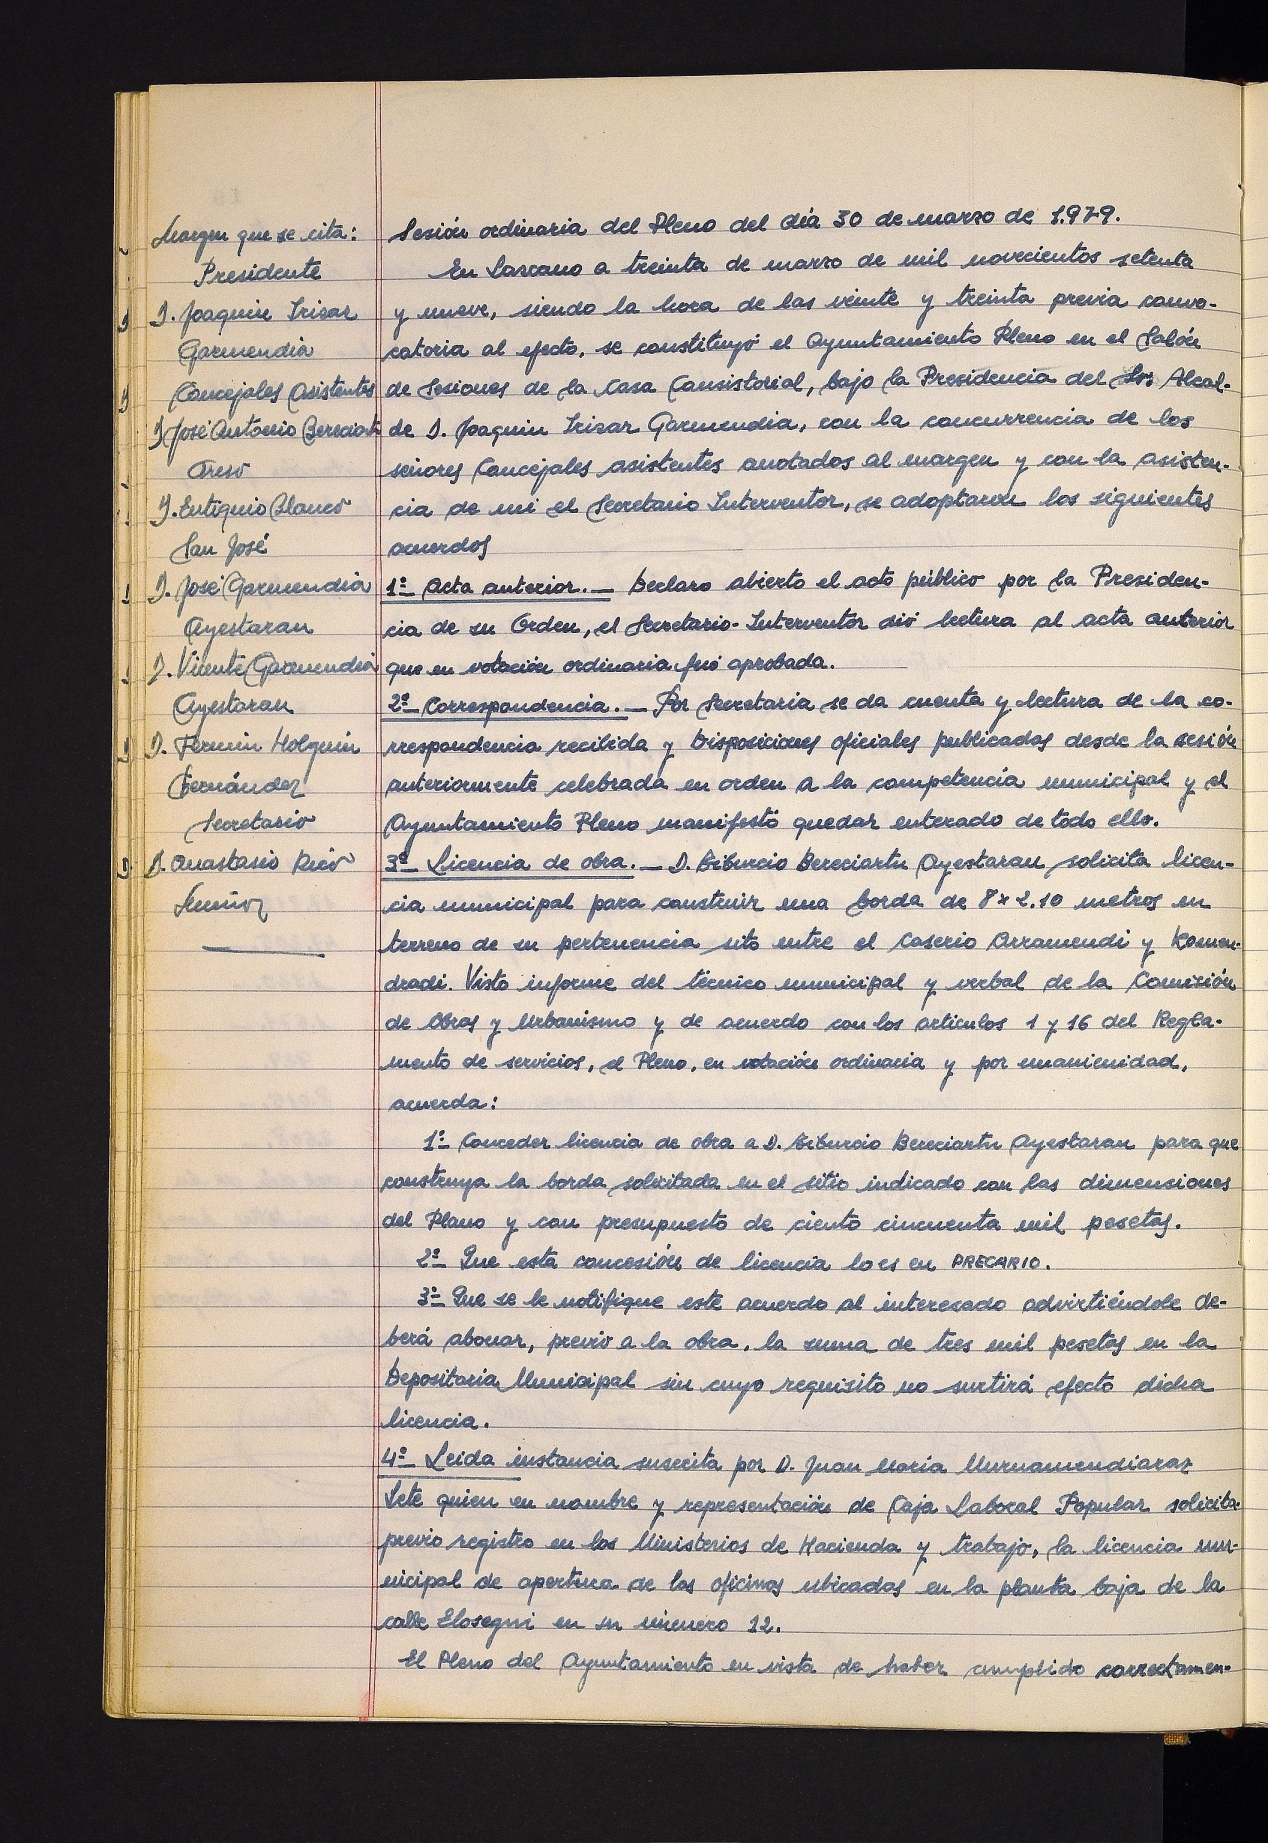 Margen que se cita:
Presidente
D. Joaquin Irizar
Garmendia
Concejales Asistentes
D. José Antonio Bereciartu
Areso
D. Eutiquio Blanco
San José
D. José Garmendia
Ayestaran
D. Vicente Garmendia
Ayestaran
D. Fermin Holguin
Fernández
Secretario
D. Anastasio Rico
Sesión ordinaria del Pleno del día 30 de marzo de 1.979.
En Lazcano a treinta de marzo de mil novecientos setenta
y nueve, siendo la hora de las veinte y treinta previa convo-
catoria al efecto, se constituyó el Ayuntamiento Pleno en el Salón
de Sesiones de la Casa Consistorial, bajo la Presidencia del Alcal-
de D. Joaquin Irizar Garmendia, con la concurrencia de los
señores Concejales asistentes anotados al margen y con la asisten-
cia de mi el Secretario Interventor, se adoptaron los siguientes
acuerdos
1º Acta anterior.— Declaro abierto el acto público por la Presiden-
cia de su Orden, el Secretario-Interventor dió lectura al acta anterior
que en votación ordinaria fué aprobada.
2º Correspondencia.— Por Secretaria se da cuenta y lectura de la co-
rrespondencia recibida y Disposiciones oficiales publicadas desde la sesión
anteriormente celebrada en orden a la competencia municipal y el
Ayuntamiento Pleno manifestó quedar enterado de todo ello.
3º Licencia de obra.— D. Tiburcio Bereciartu Ayestaran solicita licen-
cia municipal para construir una borda de 8 x 2.10 metros en
terreno de su pertenencia sito entre el caserio Arramendi y Komen-
dradi. Visto informe del técnico municipal y verbal de la Comisión
de Obras y Urbanismo y de acuerdo con los articulos 1 y 16 del Regla-
mento de servicios, el Pleno, en votación ordinaria y por unanimidad,
acuerda:
1º Conceder licencia de obra a D. Tiburcio Bereciartu Ayestaran para que
construya la borda solicitada en el sitio indicado con las dimensiones
del Plano y con presupuesto de ciento cincuenta mil pesetas.
2º Que esta concesión de licencia lo es en PRECARIO.
3º Que se le notifique este acuerdo al interesado advirtiéndole de-
berá abonar, previo a la obra, la suma de tres mil pesetas en la
Depositaria Municipal sin cuyo requisito no surtirá efecto dicha
licencia.
4º Leida instancia suscrita por D. Juan Maria Murnamendiaraz
Lete quien en nombre y representación de Caja Laboral Popular solicita
previo registro en los Ministerios de Hacienda y trabajo, la licencia mu-
nicipal de apertura de las oficinas ubicadas en la planta baja de la
calle Elosegui en su número 12.
El Pleno del Ayuntamiento en vista de haber cumplido correctamen-